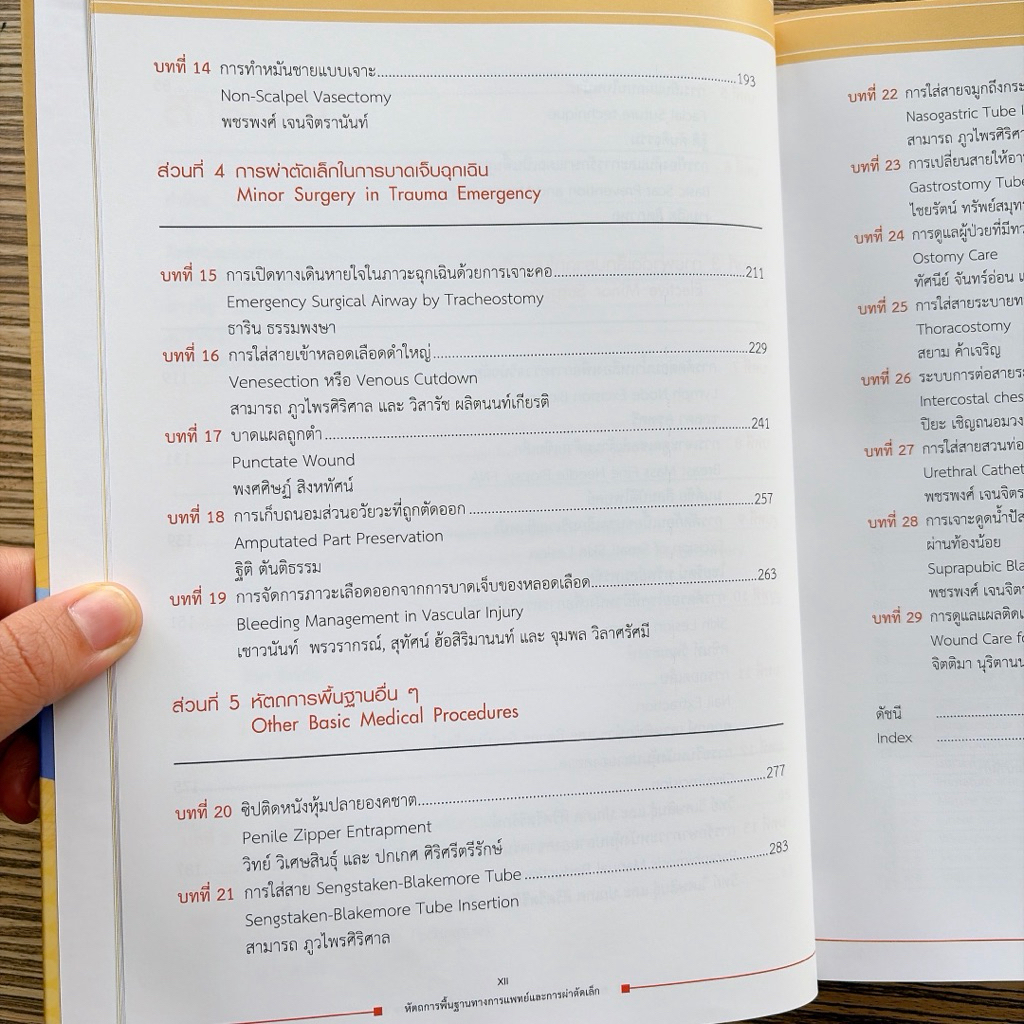 บทที่ 14 การทำหมันชายแบบเจาะ...193
Non-Scalpel Vasectomy
พชรพงศ์ เจนจิตรานันท์
ส่วนที่ 4 การผ่าตัดเล็กในการบาดเจ็บฉุกเฉิน
Minor Surgery in Trauma Emergency
บทที่ 15 การเปิดทางเดินหายใจในภาวะฉุกเฉินด้วยการเจาะคอ...211
Emergency Surgical Airway by Tracheostomy
ธาริน ธรรมพงษา
บทที่ 16 การใส่สายเข้าหลอดเลือดดำใหญ่...229
Venesection หรือ Venous Cutdown
สามารถ ภูวไพรศิริศาล และ วิสารัช ผลิตนนท์เกียรติ
บทที่ 17 บาดแผลถูกตำ...241
Punctate Wound
พงศศิษฏ์ สิงหทัศน์
บทที่ 18 การเก็บถนอมส่วนอวัยวะที่ถูกตัดออก...257
Amputated Part Preservation
ฐิติ ตันติธรรม
บทที่ 19 การจัดการภาวะเลือดออกจากการบาดเจ็บของหลอดเลือด...263
Bleeding Management in Vascular Injury
เชาวนันท์ พรวรากรณ์, สุทัศน์ ฮ้อสิริมานนท์ และ จุมพล วิลาศรัศมี
ส่วนที่ 5 หัตถการพื้นฐานอื่น ๆ
Other Basic Medical Procedures
บทที่ 20 ซิปติดหนังหุ้มปลายองคชาต...277
Penile Zipper Entrapment
วิทย์ วิเศษสินธุ์ และ ปกเกศ ศิริศรีตรีรักษ์
บทที่ 21 การใส่สาย Sengstaken-Blakemore Tube...283
Sengstaken-Blakemore Tube Insertion
สามารถ ภูวไพรศิริศาล
XII
หัตถการพื้นฐานทางการแพทย์และการผ่าตัดเล็ก
บทที่ 22 การใส่สายจมูกถึงกระ
Nasogastric Tube
สามารถ ภูวไพรศิริศา
บทที่ 23 การเปลี่ยนสายให้อา
Gastrostomy Tube
ไชยรัตน์ ทรัพย์สมุท
บทที่ 24 การดูแลผู้ป่วยที่มีทว
Ostomy Care
ทัศนีย์ จันทร์อ่อน แ
บทที่ 25 การใส่สายระบายท
Thoracostomy
สยาม ค้าเจริญ
บทที่ 26 ระบบการต่อสายระ
Intercostal ches
ปิยะ เชิญถนอมวง
บทที่ 27 การใส่สายสวนท่อ
Urethral Cathet
พชรพงศ์ เจนจิตร
บทที่ 28 การเจาะดูดน้ำปัส
ผ่านท้องน้อย
Suprapubic Bla
พชรพงศ์ เจนจิต
บทที่ 29 การดูแลแผลติดเ
Wound Care fo
จิตติมา นุริตานน
ดัชนี ...
Index ...